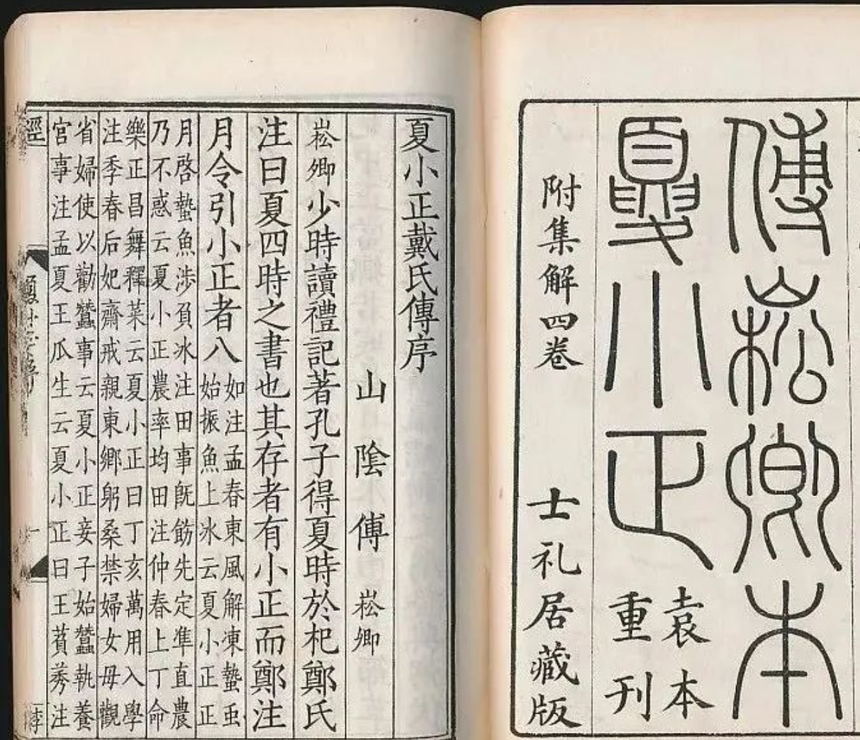 傅崧卿本
夏小正
袁本
重刊
附集解四卷
士礼居藏版
夏小正戴氏傳序
山陰傅崧卿
崧卿少時讀禮記著孔子得夏時於杞鄭氏
注曰夏四時之書也其存者有小正而鄭注
月令引小正者八
如注孟春東風解凍蟄虫
始振魚上氷云夏小正正
月啓蟄魚涉負冰注田事旣飭先定準直農
乃不惑云夏小正農率均田注仲春上丁命
樂正昌舞釋菜云夏小正曰丁亥萬用入學
注季春后妃齋戒親東鄉躬桑禁婦女毋觀
省婦使以勸蠶事云夏小正妾子始蠶執養
宮事注孟夏王瓜生云夏小正曰王萯莠注